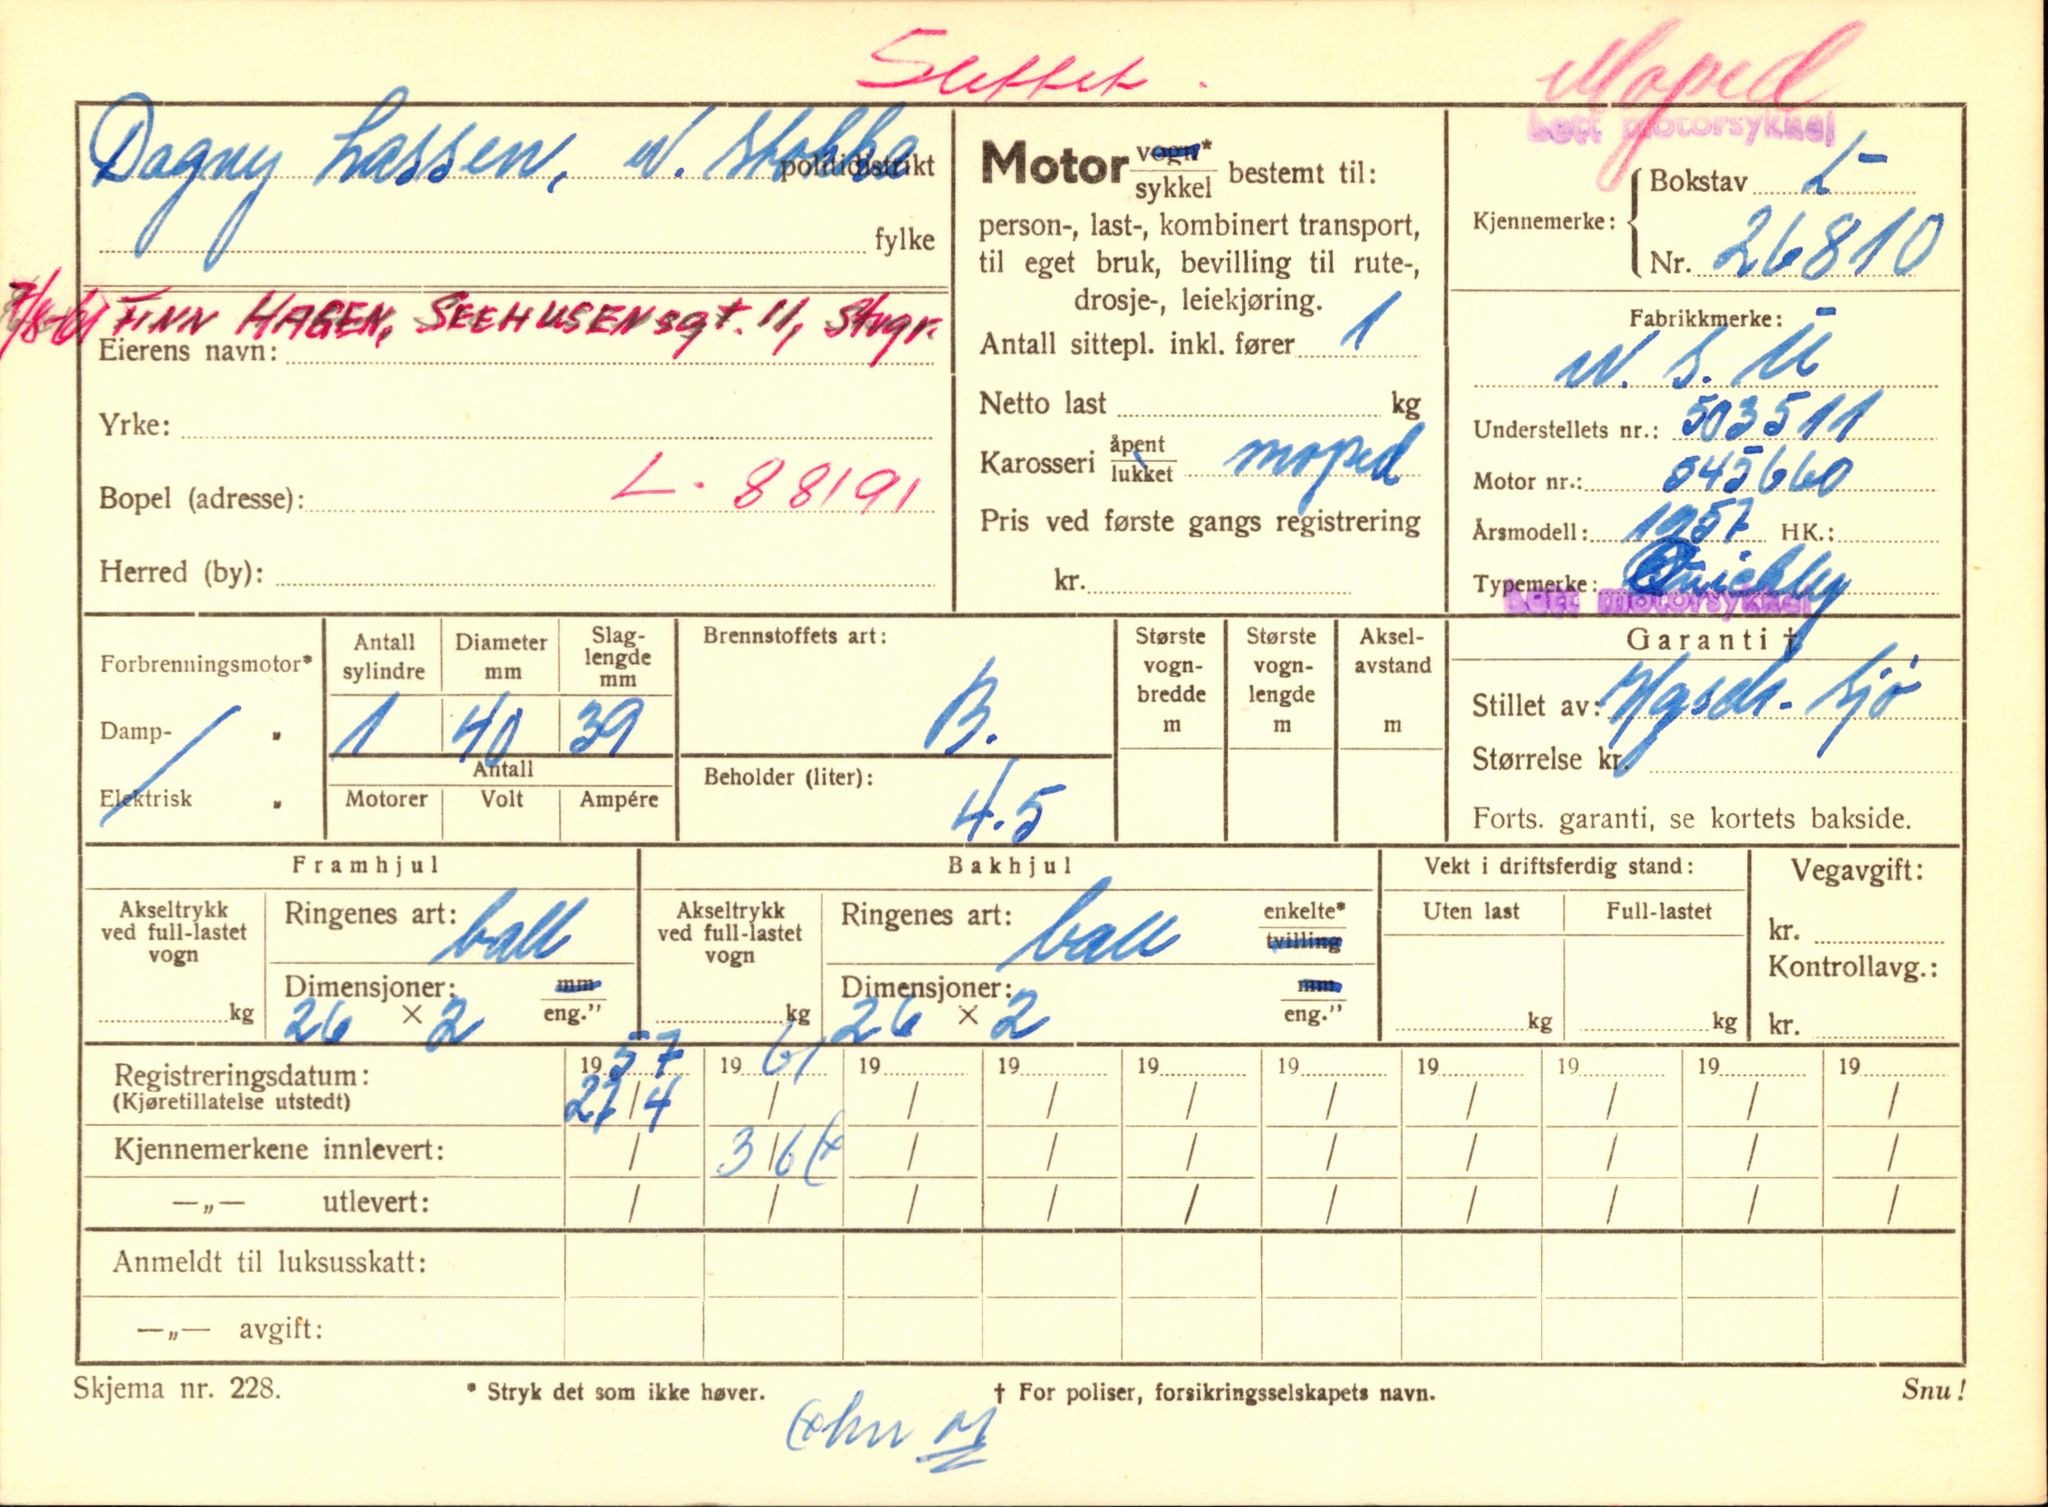 Slettet.
Moped
lett motorsykkel
Dagny Lassen, N. Stokka
politidistrikt
fylke
7/8-61 FINN HAGEN, SEEHUSENsgt. 11, Stvgr.
Eierens navn:
Yrke:
Bopel (adresse): L- 88191
Herred (by):
Motor vogn*/sykkel bestemt til:
person-, last-, kombinert transport,
til eget bruk, bevilling til rute-,
drosje-, leiekjøring.
Antall sittepl. inkl. fører 1
Netto last kg
Karosseri åpent/lukket moped
Pris ved første gangs registrering
kr.
Kjennemerke: Bokstav L-
Nr. 26810
Fabrikkmerke:
N. S. U
Understellets nr.: 503511
Motor nr.: 545660
Årsmodell: 1957 HK.:
Typemerke: Quickly
lett motorsykkel
Forbrenningsmotor*
Damp- „
Elektrisk „
Antall sylindre Diameter mm Slag-lengde mm
1 40 39
Antall
Motorer Volt Ampére
Brennstoffets art:
B.
Beholder (liter):
4.5
Største vogn-bredde m
Største vogn-lengde m
Aksel-avstand m
Garanti †
Stillet av: Sjø
Størrelse kr.
Forts. garanti, se kortets bakside.
Framhjul
Akseltrykk ved full-lastet vogn
kg
Ringenes art: ball
Dimensjoner: mm/eng."
26 × 2
Bakhjul
Akseltrykk ved full-lastet vogn
kg
Ringenes art: ball enkelte*/tvilling
Dimensjoner: mm/eng."
26 × 2
Vekt i driftsferdig stand:
Uten last Full-lastet
kg kg
Vegavgift:
kr.
Kontrollavg.:
kr.
Registreringsdatum: 1957 1961 19 19 19 19 19 19 19 19
(Kjøretillatelse utstedt) 27/4 / / / / / / / / /
Kjennemerkene innlevert: / 3/6 / / / / / / / /
—„— utlevert: / / / / / / / / / /
Anmeldt til luksusskatt:
—„— avgift:
Skjema nr. 228.
* Stryk det som ikke høver.
† For poliser, forsikringsselskapets navn.
Snu!